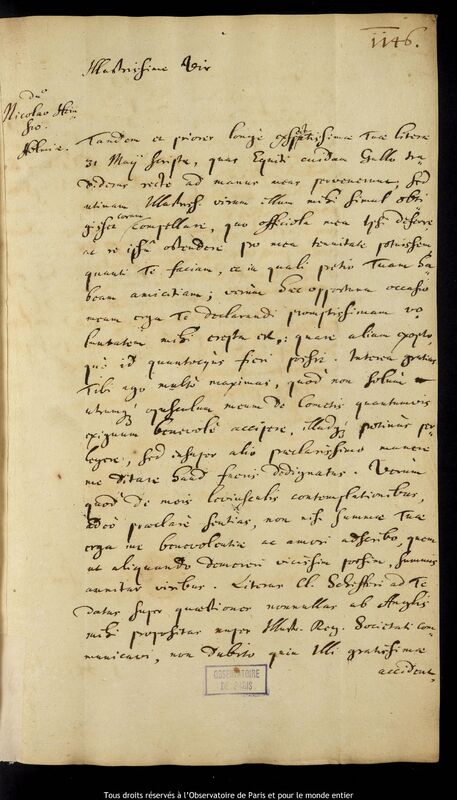 1146.
Illustrissime Vir
Dno
Nicolao Hein
sio.
Holmiæ.
Tandem et priores longè exspectatissimæ Tuæ literæ
31 Maij scriptæ, quas Equiti cuidam Gallo tra
dideras rectè ad manus meas pervenerunt, sed
utinam Illustriss. virum illum mihi simul obti
gisset coram compellare, quo officiola mea ipsi deferre
ac re ipsâ ostendere pro mea tenuitate potuissem
quanti Te faciam, et in quali pretio Tuam ha
beam amicitiam; verùm hæc opportuna occasio
meam erga Te declarandi promptissimam vo
luntatem mihi erepta est: quare aliam exopto
quò id quantocyùs fieri possit. Interea gratias
Tibi ago multò maximas, quòd non solùm
utrumq; opusculum meum de Cometis quantumvis
exiguum benevolè accipere, illudq; potius per
legere, sed insuper alio præclarissimo munere
me ditare haud fueris dedignatus. Verùm
quòd de meis leviusculis contemplationibus,
adeò præclarè sentias, non nisi summæ Tuæ
erga me benevolentiæ ac amori adscribo, quem
ut aliquando demereri vicissim possim, summis
annitar viribus. Literas Cl. Schefferi ad Te
datas super quæstiones nonnullas ab Anglis
mihi propositas nuper Illustr. Reg. Societati com
municavi, non dubito quin Illi gratissimæ
accident,
OBSERVATOIRE
DE PARIS
Tous droits réservés à l'Observatoire de Paris et pour le monde entier